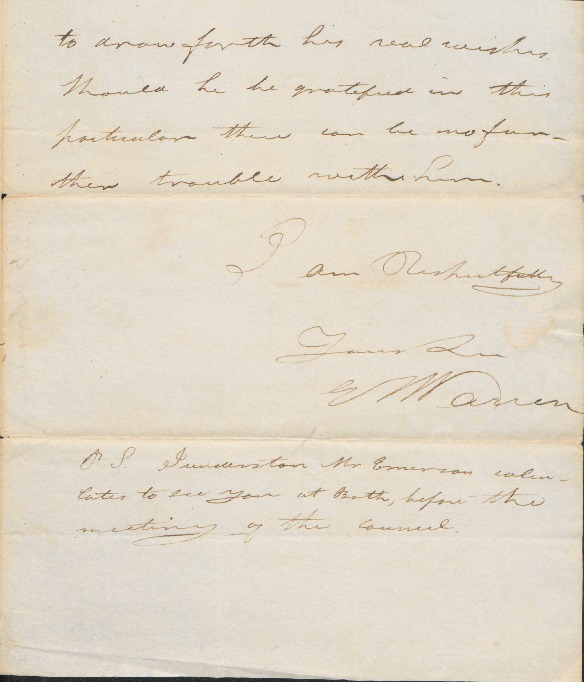 to draw forth his real wishes.
Should he be gratified in this
particular there can be no fur-
ther trouble with him.
I am Respectfully
Yours &c
Warren
P.S. I understan Mr Emerson calcu-
lates to see you at Bath, before the
meeting of the Council.